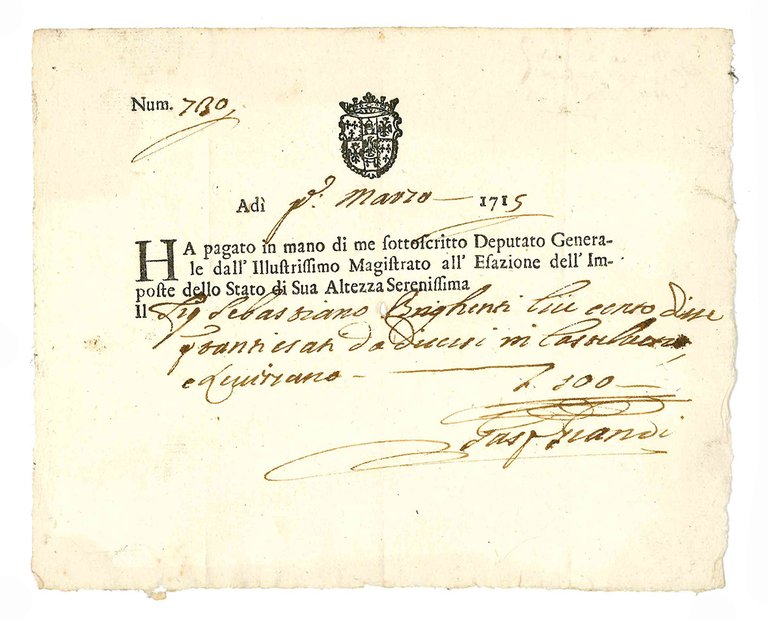 Num. 730
Adì pº. Marzo 1715
HA pagato in mano di me sottoscritto Deputato Genera-
le dall' Illustrissimo Magistrato all' Esazione dell' Im-
poste dello Stato di Sua Altezza Serenissima
Il Sig Sebastiano Brighenti liu cento disse
esati da diuersi in
e
L. 100